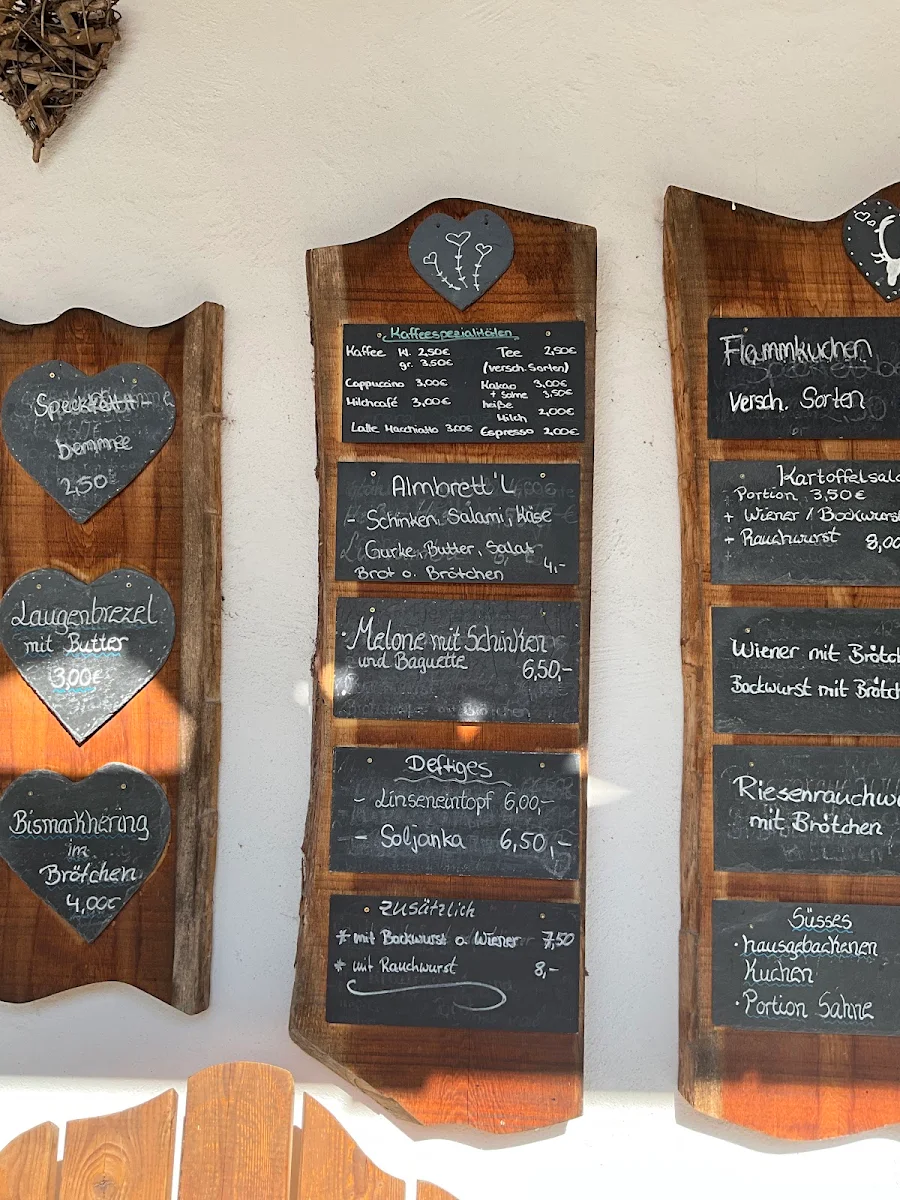 Speckfett-
bemme
2,50
Laugenbrezel
mit Butter
3,00€
Bismarkhering
im
Brötchen
4,00€
Kaffeespezialitäten
Kaffee kl. 2,50€
gr. 3,50€
Cappuccino 3,00€
Milchcafé 3,00€
Latte Macchiato 3,00€
Tee 2,50€
(versch. Sorten)
Kakao 3,00€
+ Sahne 3,50€
heiße
Milch 2,00€
Espresso 2,00€
Almbrett'L
- Schinken, Salami, Käse
Gurke, Butter, Salat
Brot o. Brötchen 4,-
Melone mit Schinken
und Baguette 6,50,-
Deftiges
- Linseneintopf 6,00,-
- Soljanka 6,50,-
zusätzlich
* mit Bockwurst o. Wiener 7,50
* mit Rauchwurst 8,-
Flammkuchen
versch. Sorten
Kartoffelsala
Portion 3,50€
+ Wiener / Bockwurst
+ Rauchwurst 8,00
Wiener mit Brötc
Bockwurst mit Brötch
Riesenrauchwu
mit Brötchen
Süsses
· hausgebackenen
Kuchen
· Portion Sahne